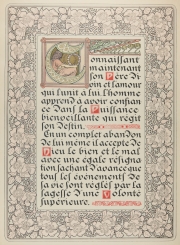 Connaissant
maintenant
son Père Di
on et l'amour
qui l'unit à lui l'homme
apprend à avoir confian
ce dans la Puissance
bienveillante qui régit
son Destin.
En un complet abandon
de lui même il accepte de
Dieu le bien et le mal
avec une égale résigna
tion sachant d'avance que
tous les événements de
la vie sont réglés par la
sagesse d'une Volonté
supérieure.